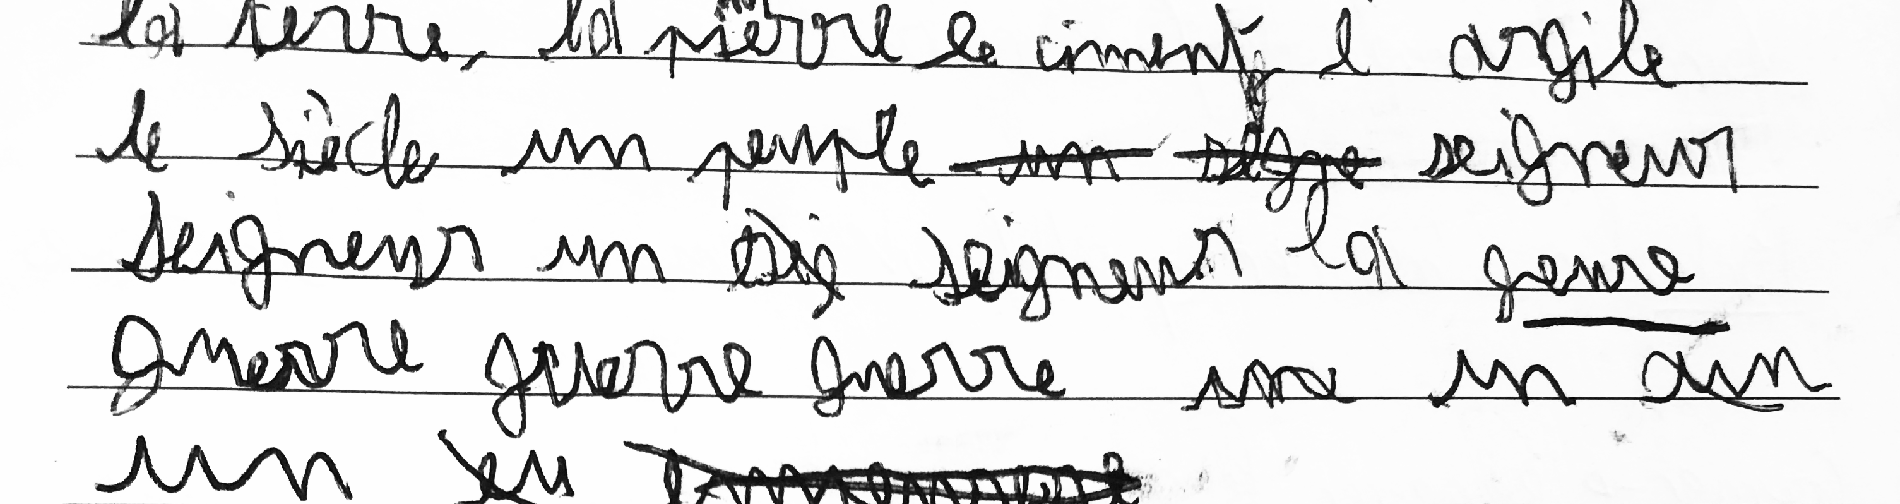 la terre, la pierre le ciment, l argile
le siècle un peuple un seigneur
seigneur un seigneur la genre
guerre guerre guerre une un
un